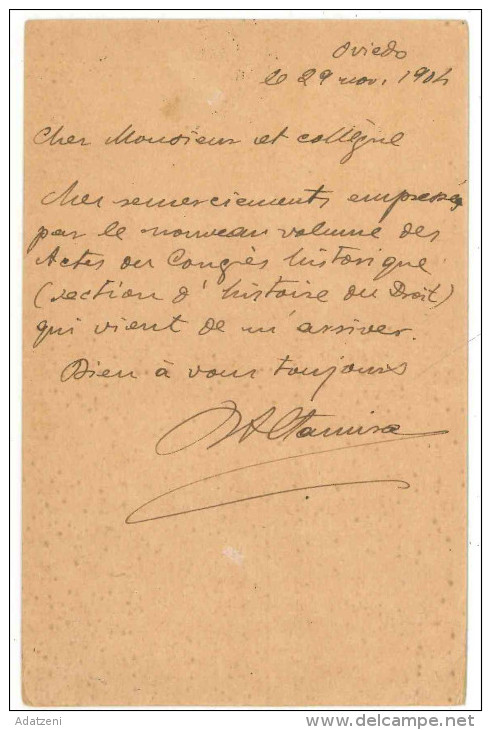 Oviedo
le 29 nov. 1904
Cher Monsieur et collègue
Mes remerciements empressés
par le nouveau volume des
Actes du Congrès historique
(section d'histoire du Droit)
qui vient de m'arriver.
Bien à vous toujours
R Altamira
Adatzeni
www.delcampe.net